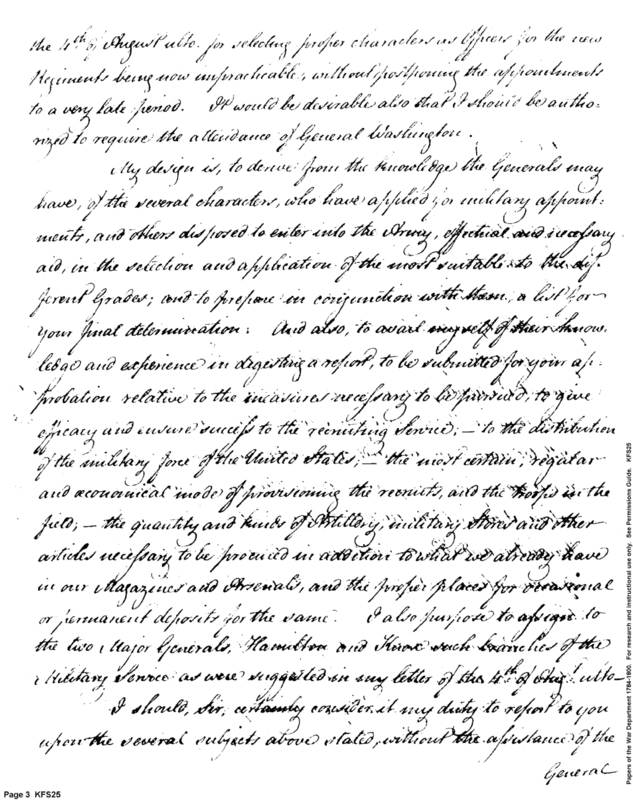 the 4th of August ulto. for selecting proper characters as Officers for the new
Regiments being now impracticable, without postponing the appointments
to a very late period. It would be desirable also that I should be autho-
rized to require the attendance of General Washington.
My design is, to derive from the knowledge the Generals may
have, of the several characters, who have applied for military appoint-
ments, and others disposed to enter into the Army, effectual and necessary
aid, in the selection and application of the most suitable to the dif-
ferent Grades; and to prepare in conjunction with them, a list for
your final determination: And also, to avail myself of their know-
ledge and experience in digesting a report, to be submitted for your ap-
probation relative to the measures necessary to be pursued, to give
efficacy and ensure success to the recruiting Service; — to the distribution
of the military force of the United States; — the most certain, regular
and œconomical mode of provisioning the recruits, and the troops in the
field; — the quantity and kinds of Artillery, military Stores and other
articles necessary to be procured in addition to what we already have
in our Magazines and Arsenals, and the proper places for occasional
or permanent deposits for the same. I also purpose to assign to
the two Major Generals, Hamilton and Knox such branches of the
Military Service as were suggested in my letter of the 4th of Augt. ulto-
I should, Sir, certainly consider it my duty to report to you
upon the several subjects above stated, without the assistance of the
General
Page 3 KFS25
Papers of the War Department 1784-1800. For research and instructional use only. See Permissions Guide. KFS25